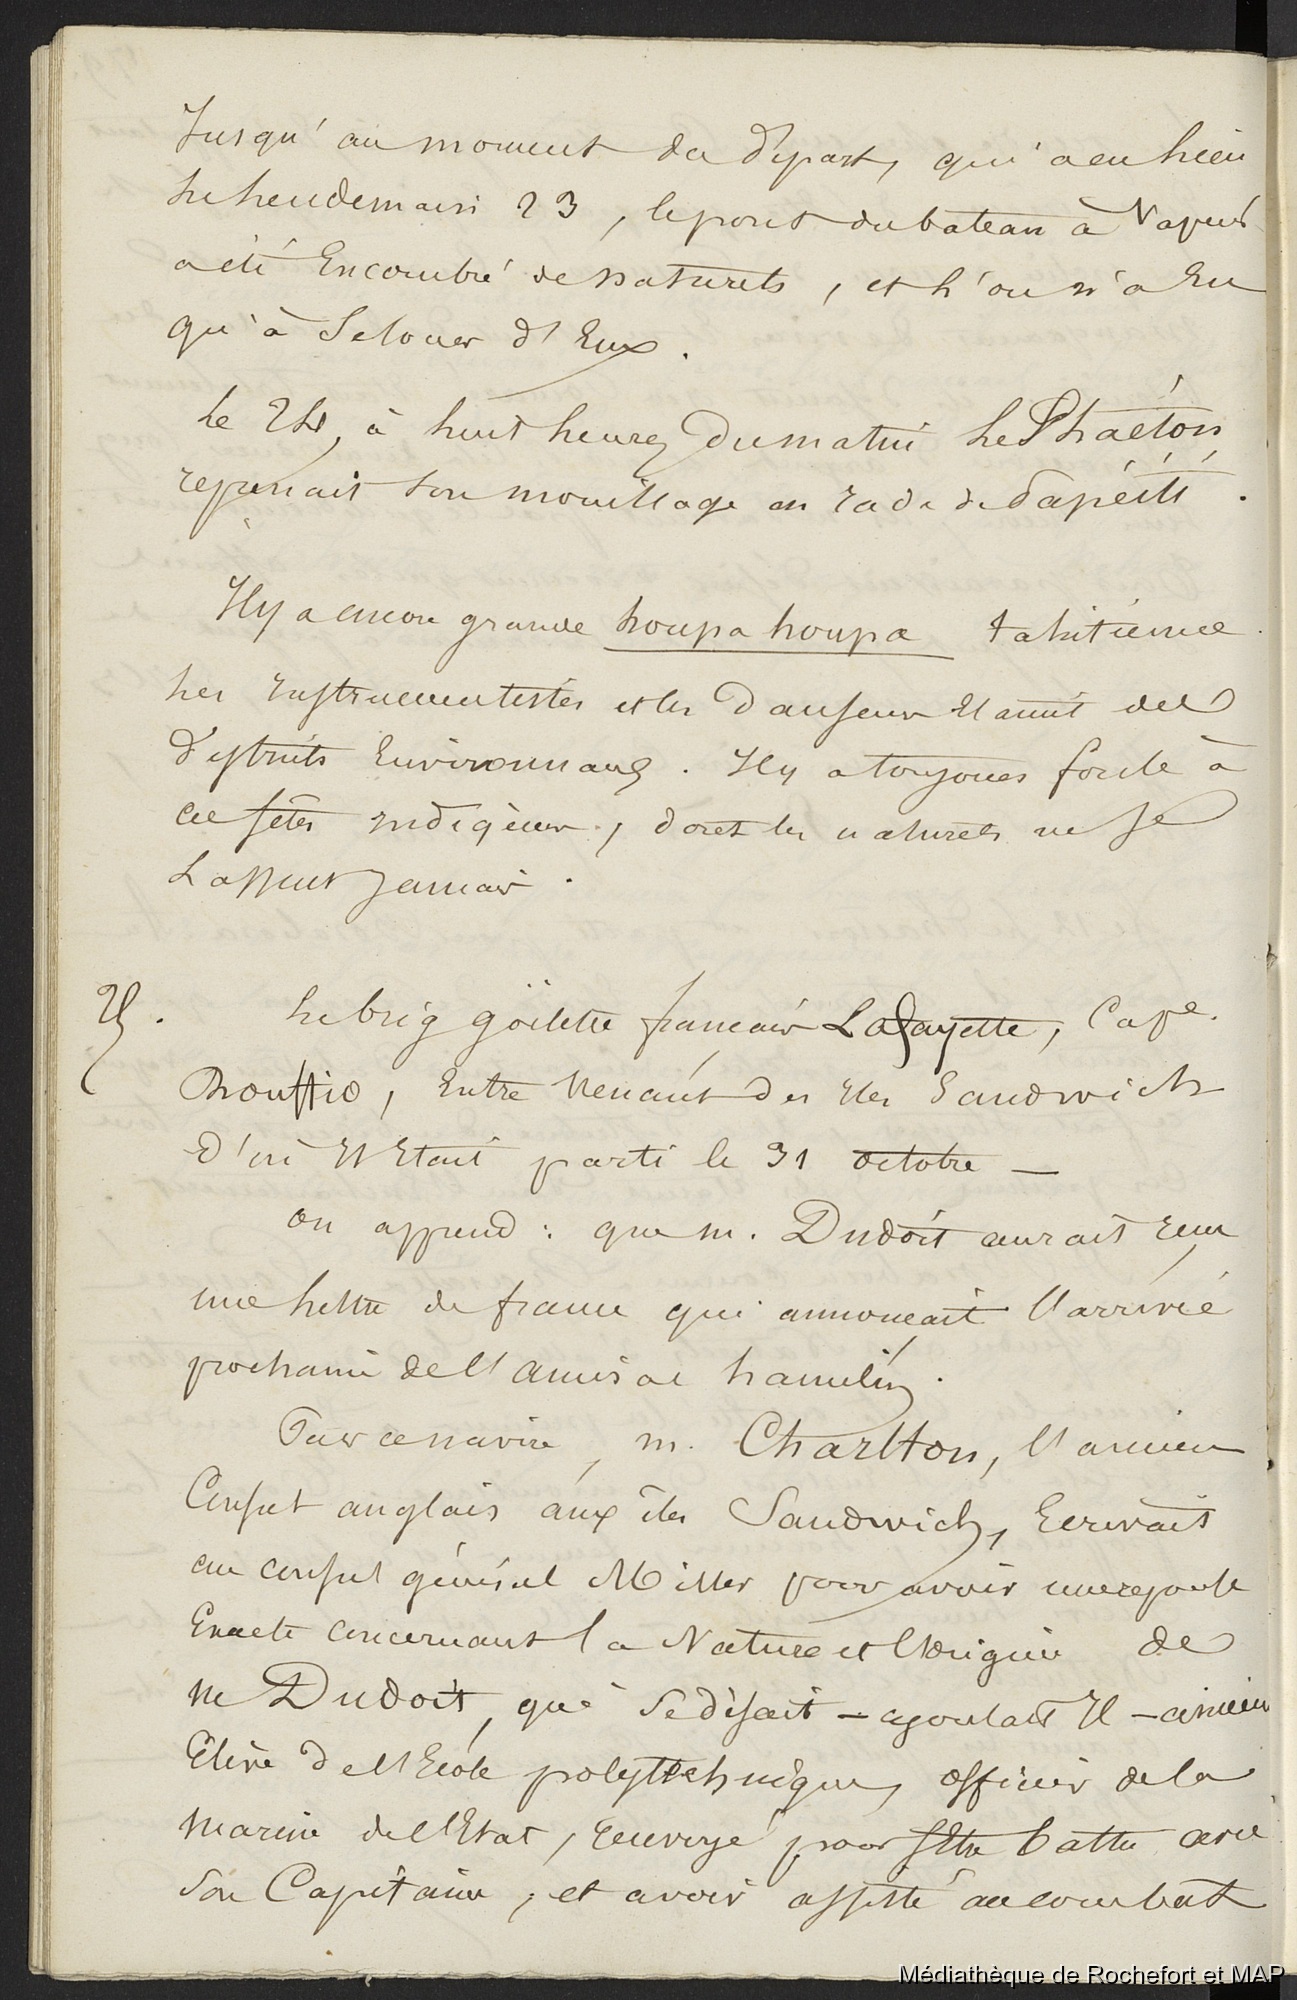 Jusqu'au moment du départ, qui a eu lieu
le lendemain 23, le pont du bateau à Vapeur
a été Encombré de naturels, et l'on n'a Eu
qu'à Se louer d'Eux.
Le 24, à huit heures du matin le Phaéton
reprenait son mouillage en rade de Papéiti.
Il y a encore grande houpa houpa tahitienne.
les Instrumentistes et les Danseurs Etaient des
districts Environnans. Il y a toujours foule à
ces fêtes indigènes, dont les naturels ne se
Lassent jamais.
25. Le brig göilette français Lafayette, Cape.
Rouffio, Entre Venant des Iles Sandwich
d'où Il Etait parti le 31 octobre —
on apprend : que m. Dudoit aurait reçu
une lettre de france qui annonçait l'arrivée
prochaine de l'amiral hamelin.
Par ce navire, m. Charlton, l'ancien
Consul anglais aux îles Sandwich, Ecrivait
au consul général Miller pour avoir une reponse
Exacte concernant la Nature et l'Origine de
M Dudoit, qui se disait — ajoutait Il — ancien
Elève de l'Ecole polytechnique, officier de la
marine de l'Etat, renvoyé pour s'Etre battu avec
son Capitaine, et avoir assisté au combat
Médiathèque de Rochefort et MAP